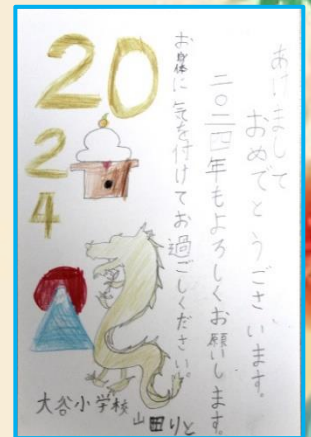 あけまして
おめでとうございます。
二〇二四年もよろしくお願いします。
お身体に気を付けてお過ごしください。
2024
大谷小学校
山田りと